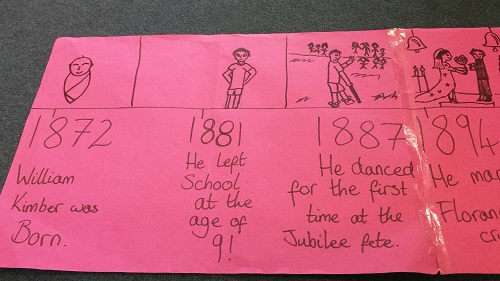 1872
William
Kimber was
Born.
1881
He left
School
at the
age of
9!
1887
He danced
for the first
time at the
Jubilee fete.
1894
He